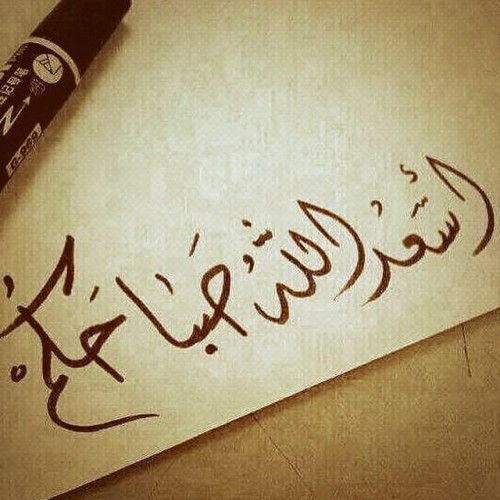 أسعد الله صباحكم